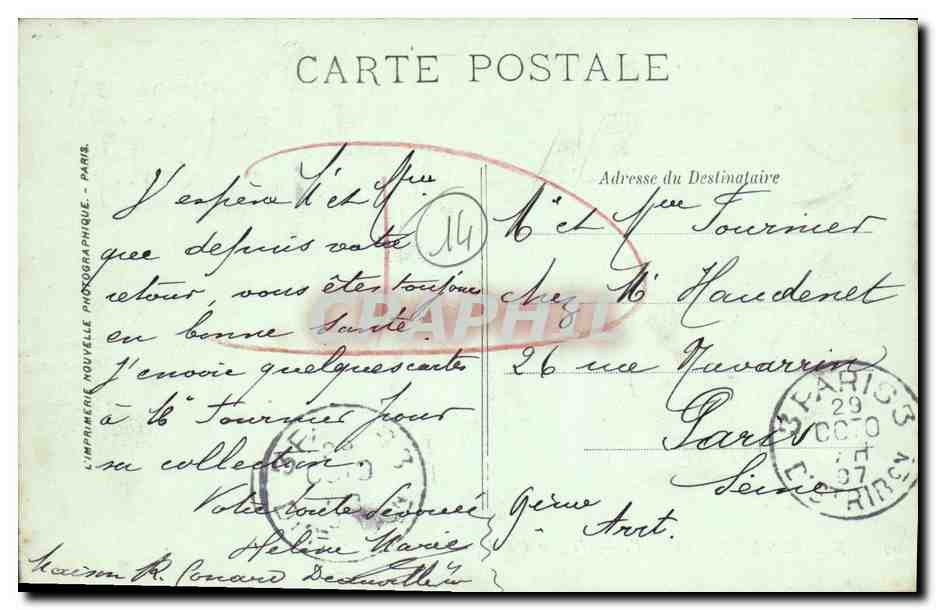 CARTE POSTALE
L'IMPRIMERIE NOUVELLE PHOTOGRAPHIQUE. - PARIS.
J'espère Mr et Mme
que depuis votre
retour, vous êtes toujours
en bonne santé.
J'envoie quelques cartes
à Mr Fournier pour
sa collection.
Votre toute dévouée
Hélène Marie
Maison R. Conard
14
Adresse du Destinataire
Mr et Mme Fournier
chez Mr Haudenet
26 rue Navarrin
Paris
Seine
9ème Arrt.
PARIS 3
29
OCTO
07
DISTRIBON
CPAPHIL